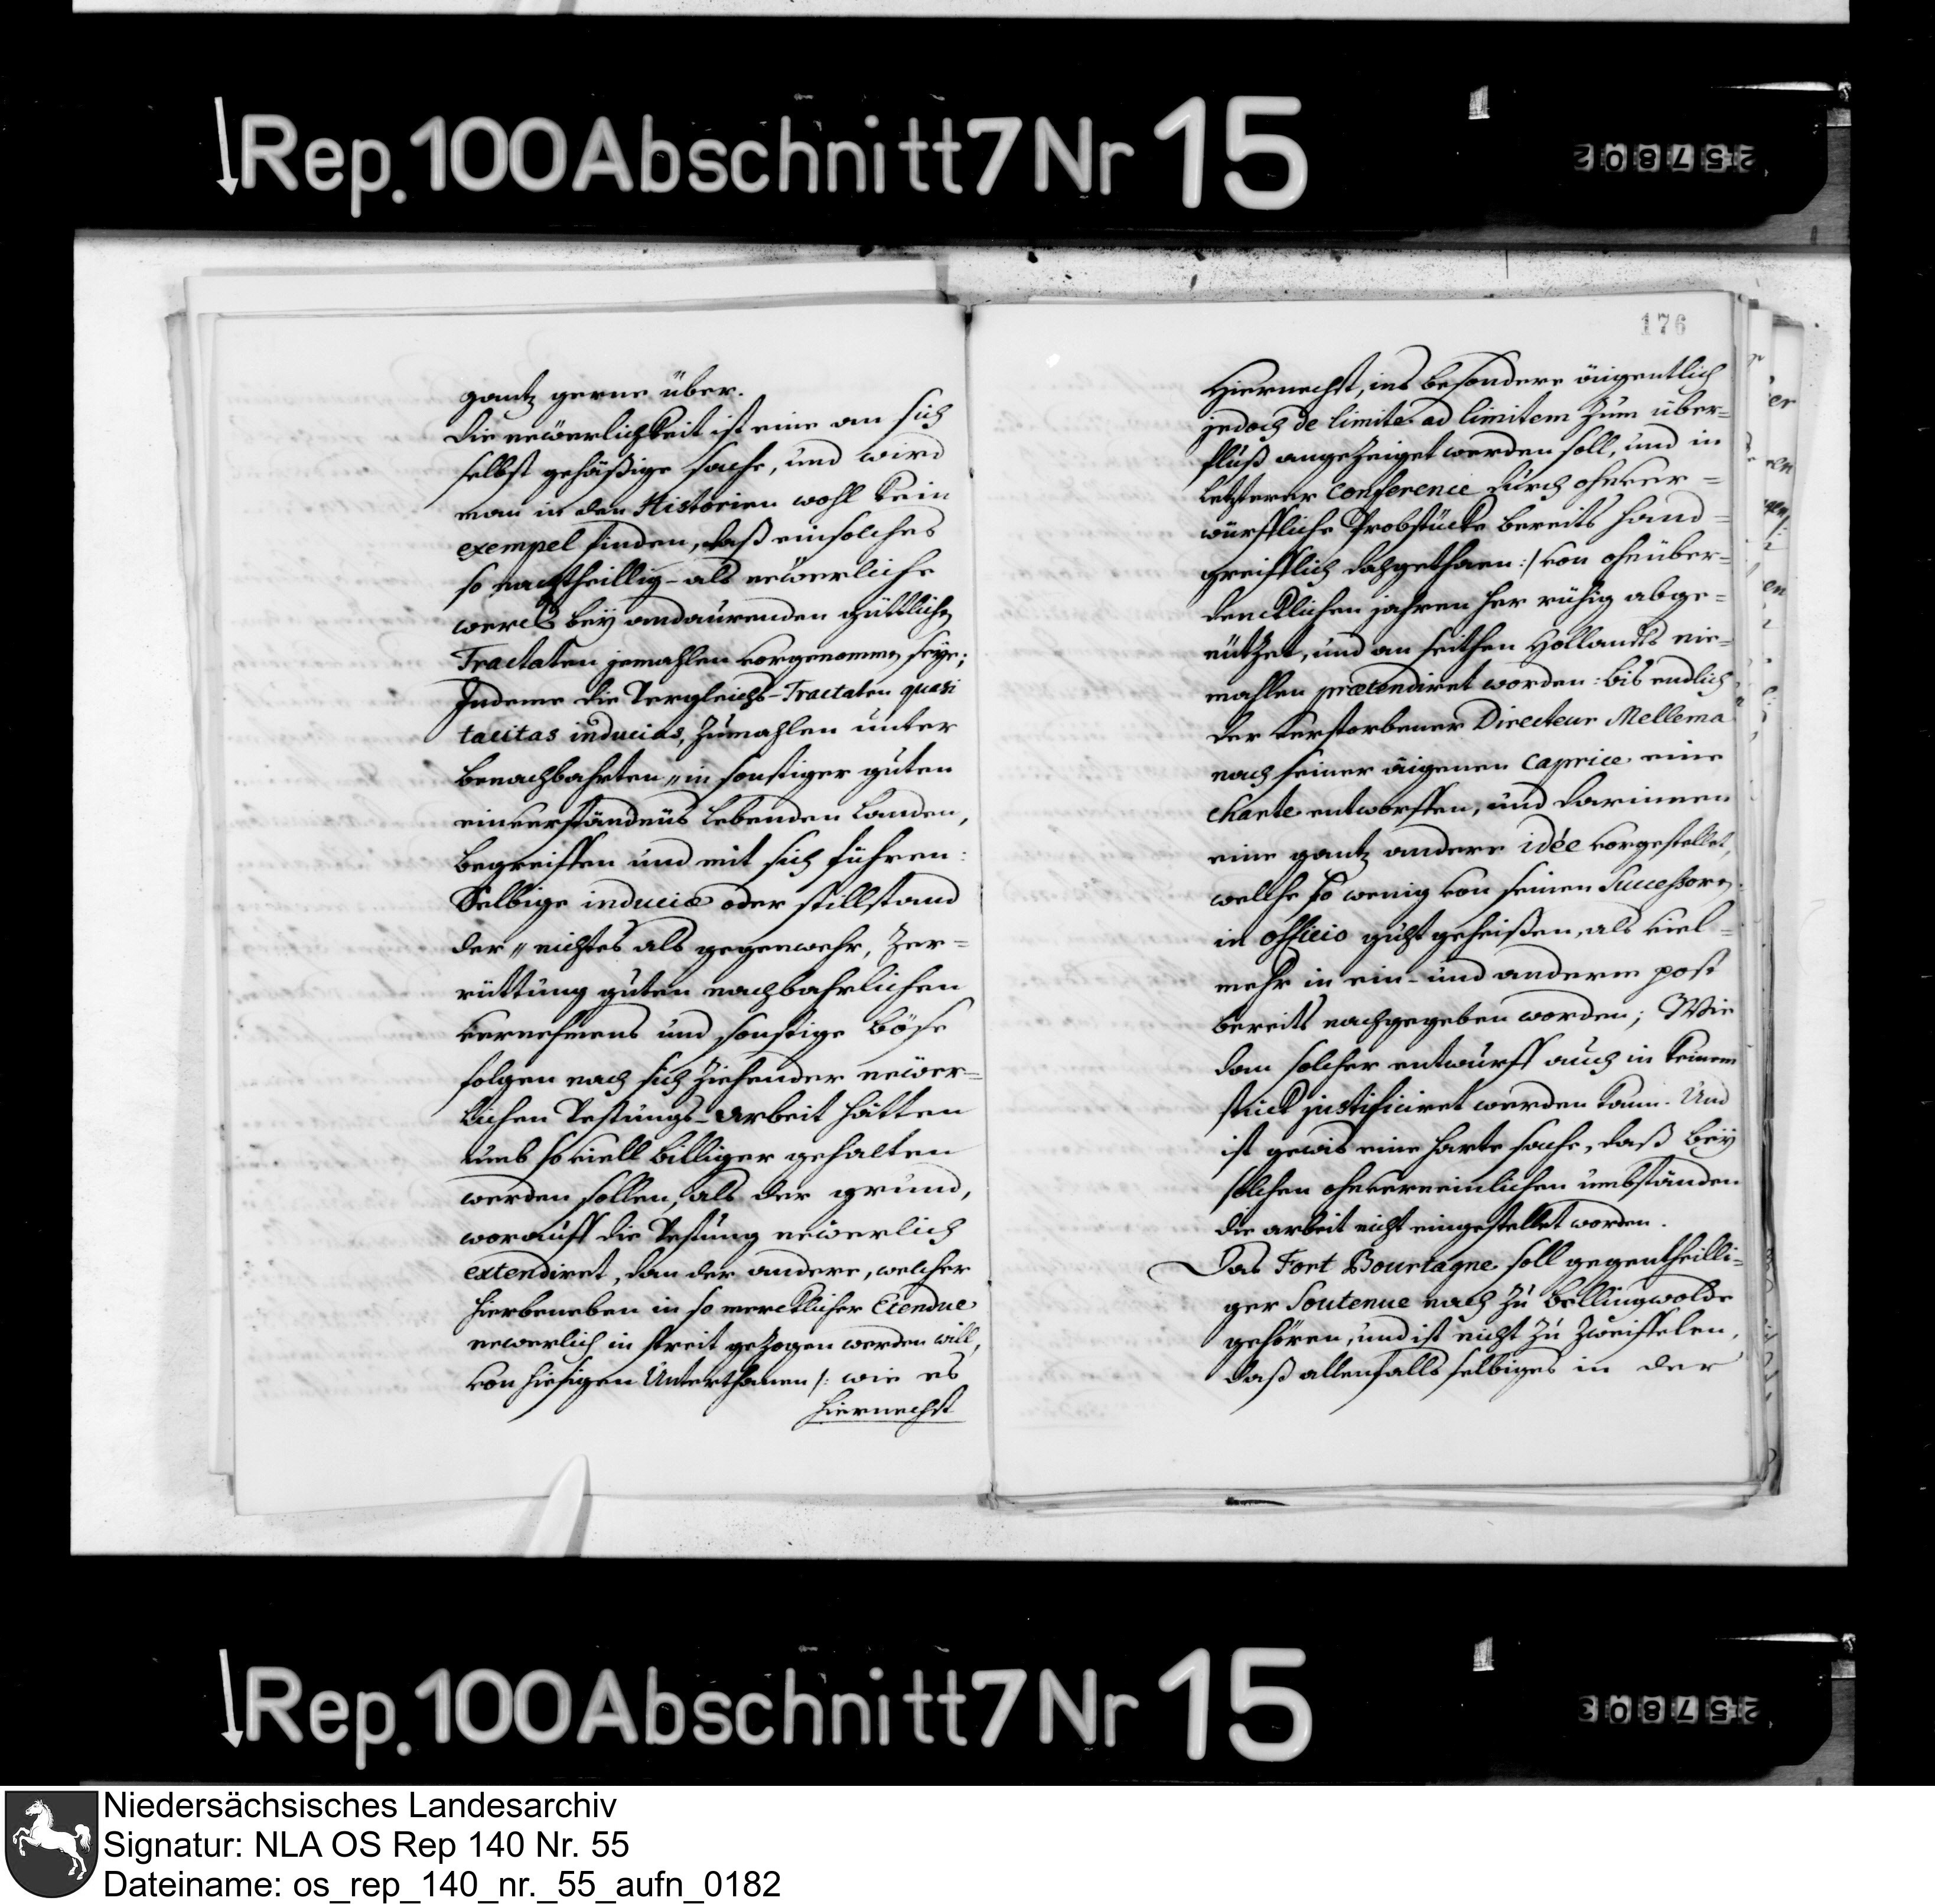 Rep. 100 Abschnitt 7 Nr 15
257802
gantz gerne über.
Die newerlichkeit ist eine an sich
selbst gehäßige sache, und wird
man in den Historien wohl kein
exempel finden, daß ein solches
so nachtheillig- als newerliche
werck bey andaurenden güttlichen
Tractaten jemahlen vorgenommen seye;
Indeme die Vergleichs-Tractaten quasi
tacitas inducias, zumahlen unter
benachbahrten„ in sonstiger guten
einverständnüs lebenden Landen,
begreiffen und mit sich führen:
Selbige induciæ oder stillstand
der„ nichtes als gegenwehr, Zer=
rüttung guten nachbahrlichen
vernehmens und sonstige böse
folgen nach sich ziehender newer=
lichen Vestungs-arbeit hätten
umb so viell billiger gehalten
werden sollen, als der grund,
worauff die Vestung newerlich
extendiret, dan der andere, welcher
hierbeneben in so mercklicher Etendue
newerlich in streit gezogen werden will,
von hiesigen Unterthanen /: wie es
hiernechst
176
Hiernechst, ins besondere äigentlich
jedoch de limite ad limitem zum über=
fluß angezeiget werden soll, und in
letzterer Conference durch ohnver=
würffliche Probstücke bereits hand=
greifflich dahgethaen :/ von ohnüber=
dencklichen jahren her ruhig abge=
nützet, und an seithen Hollandts nie=
mahlen prætendiret worden: bis endlich
der verstorbener Directeur Mellema
nach seiner äigenen Caprice eine
Charte entworffen, und darinnen
eine gantz andere idée vorgestellet,
welche so wenig von seinen Successoren
in officio guht geheißen, als viel=
mehr in ein- und anderem post
bereits nachgegeben worden; Wie
dan solcher entwurff auch in keinem
stück justificiret werden kann. Und
ist gewis eine harte sache, daß bey
solchen ohnverneinlichen umbständen
die arbeit nicht eingestellet worden.
Das Fort Bourtagne soll gegentheilli=
ger Soutenue nach zu Bellingwolde
gehören, und ist nicht zu zweiffelen,
daß allenfalls selbiges in der
Rep. 100 Abschnitt 7 Nr 15
257803
Niedersächsisches Landesarchiv
Signatur: NLA OS Rep 140 Nr. 55
Dateiname: os_rep_140_nr._55_aufn_0182